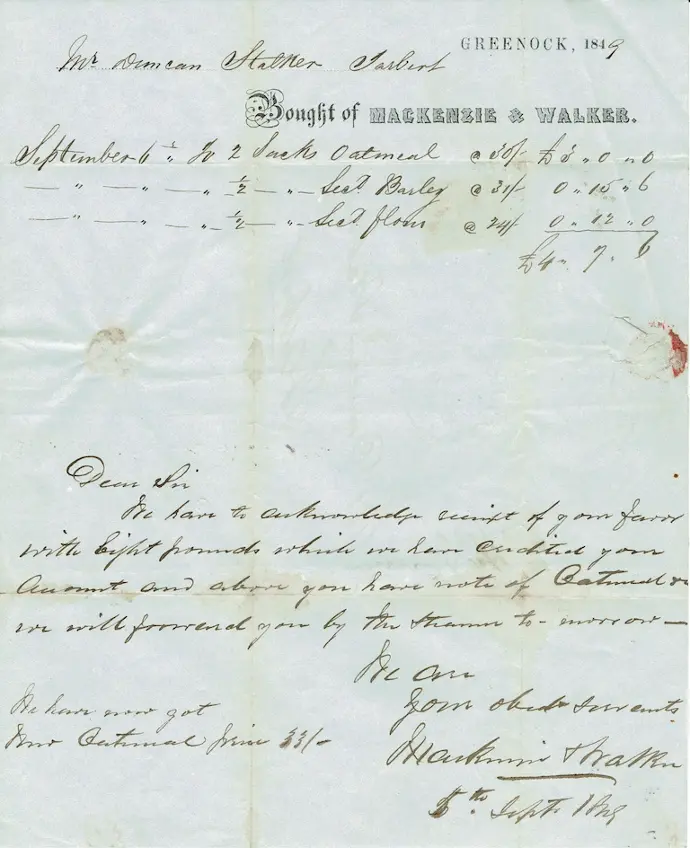 GREENOCK, 1849
Mr Duncan Stalker Tarbert
Bought of MACKENZIE & WALKER.
September 6 " To 2 Sacks Oatmeal @ 30/ £3 " 0 " 0
— " — " ½ — " — Scat Barley @ 31/ 0 " 15 " 6
— " — " ½ — " — Scat flour @ 24/ 0 " 12 " 0
£4 " 7 " 6
Dear Sir
We have to acknowledge receipt of your favor
with Eight pounds which we have credited your
Account and above you have note of Oatmeal &c
we will forward you by the steamer to-morrow—
We are
Your obedt servants
Mackenzie & Walker
5th Sept 1849
We have now got
New Oatmeal price 33/-